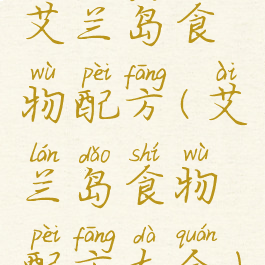 艾兰岛食
wù pèi fāng ài
物配方(艾
lán dǎo shí wù
兰岛食物
pèi fāng dà quán
配方大全)